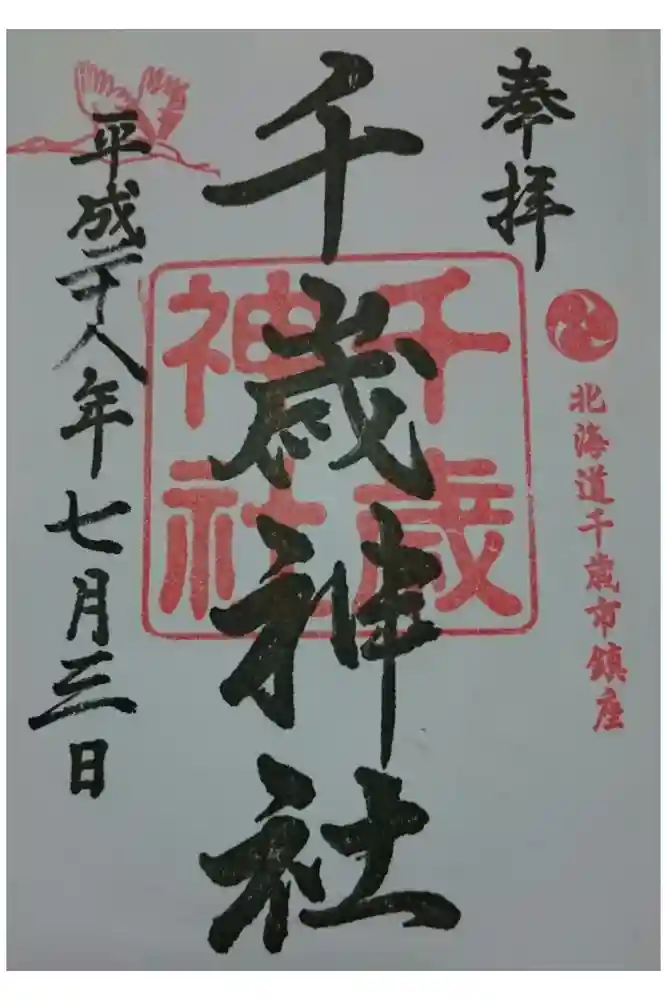 奉拝
北海道千歳市鎮座
千歳神社
千歳
神社
平成二十八年七月三日